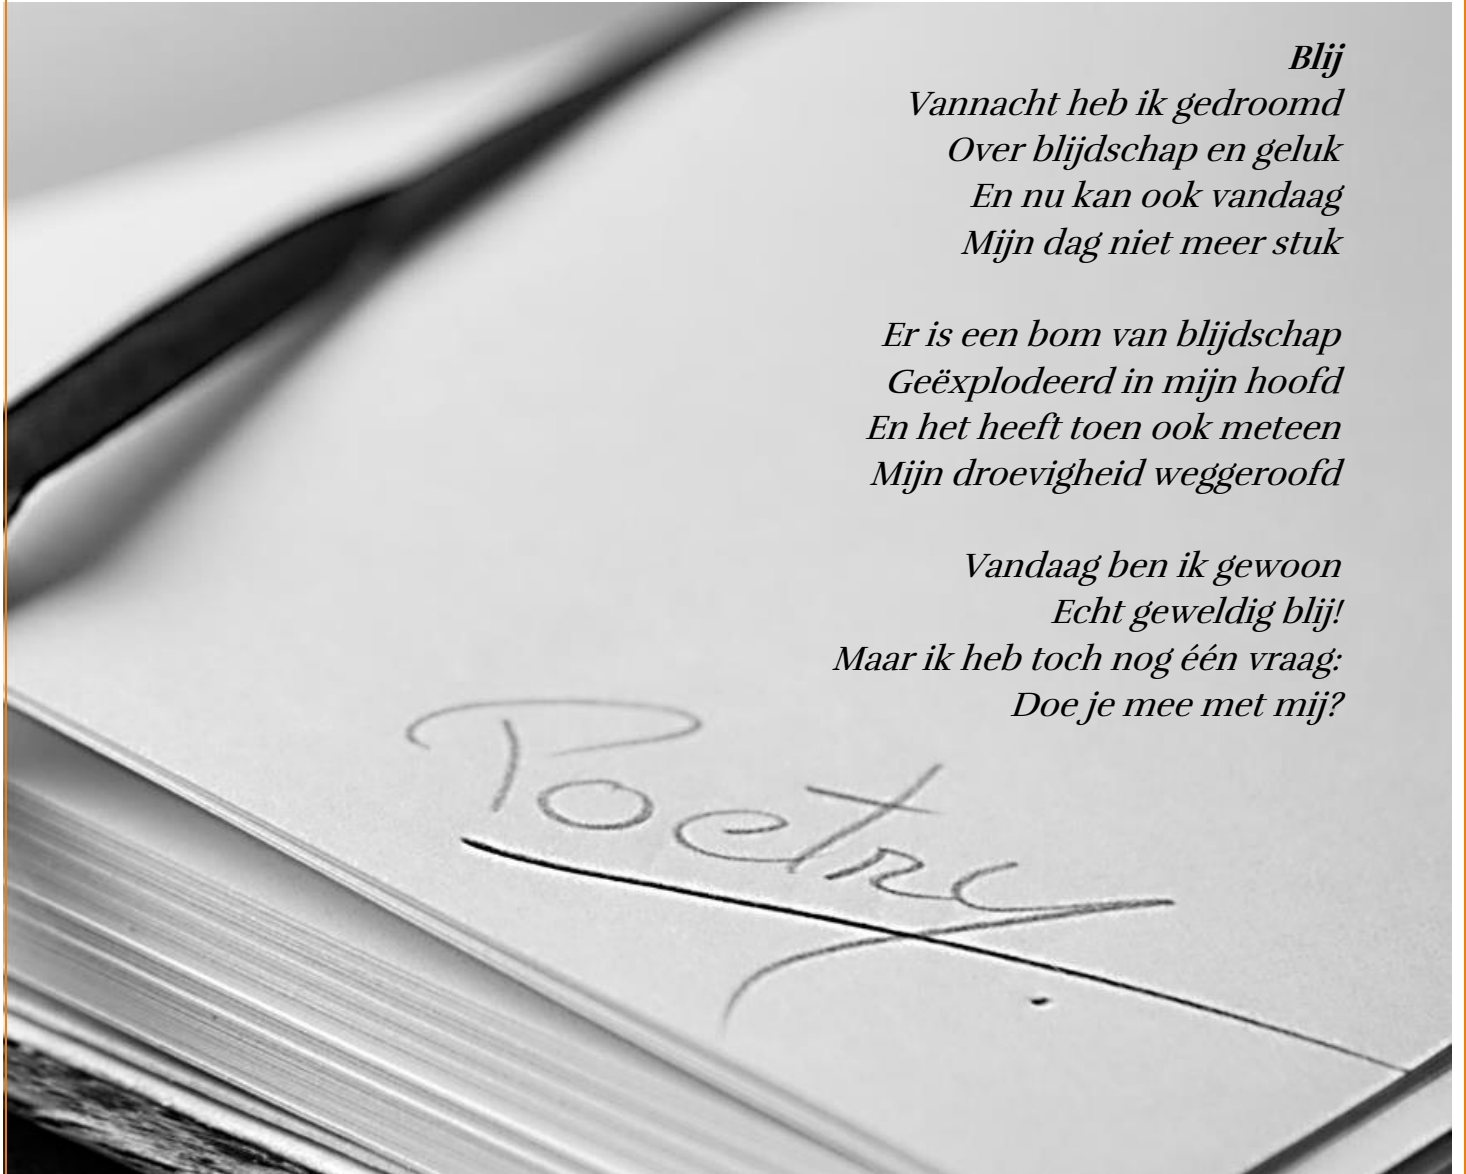 Blij
Vannacht heb ik gedroomd
Over blijdschap en geluk
En nu kan ook vandaag
Mijn dag niet meer stuk
Er is een bom van blijdschap
Geëxplodeerd in mijn hoofd
En het heeft toen ook meteen
Mijn droevigheid weggeroofd
Vandaag ben ik gewoon
Echt geweldig blij!
Maar ik heb toch nog één vraag:
Doe je mee met mij?
Poetry